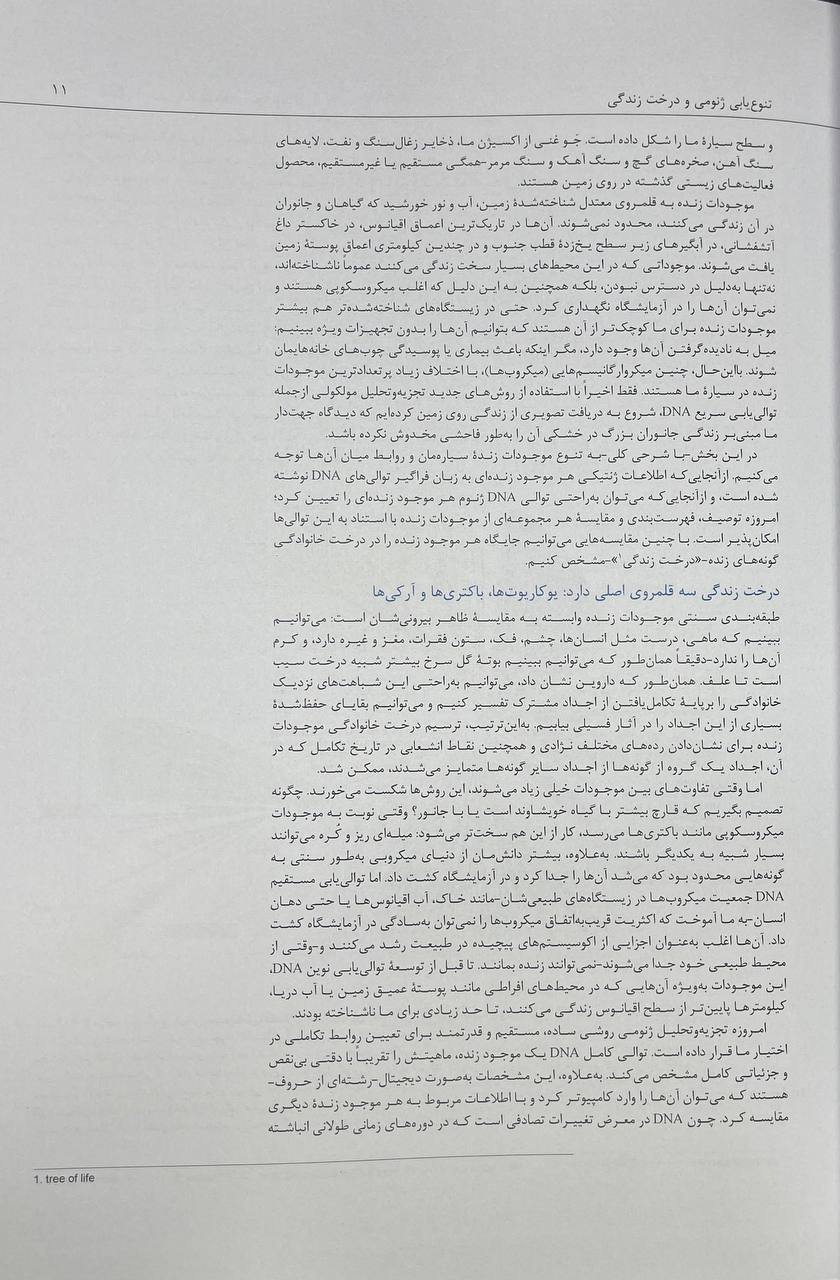 تنوع‌یابی ژنومی و درخت زندگی
۱۱
و سطح سیارهٔ ما را شکل داده است. جَو غنی از اکسیژن ما، ذخایر زغال‌سنگ و نفت، لایه‌های
سنگ آهن، صخره‌های گچ و سنگ آهک و سنگ مرمر-همگی مستقیم یا غیرمستقیم، محصول
فعالیت‌های زیستی گذشته در روی زمین هستند.
موجودات زنده به قلمروی معتدل شناخته‌شدهٔ زمین، آب و نور خورشید که گیاهان و جانوران
در آن زندگی می‌کنند، محدود نمی‌شوند. آن‌ها در تاریک‌ترین اعماق اقیانوس، در خاکستر داغ
آتشفشانی، در آبگیرهای زیر سطح یخ‌زدهٔ قطب جنوب و در چندین کیلومتری اعماق پوستهٔ زمین
یافت می‌شوند. موجوداتی که در این محیط‌های بسیار سخت زندگی می‌کنند عموماً ناشناخته‌اند،
نه‌تنها به‌دلیل در دسترس نبودن، بلکه همچنین به این دلیل که اغلب میکروسکوپی هستند و
نمی‌توان آن‌ها را در آزمایشگاه نگهداری کرد. حتی در زیستگاه‌های شناخته‌شده‌تر هم بیشتر
موجودات زنده برای ما کوچک‌تر از آن هستند که بتوانیم آن‌ها را بدون تجهیزات ویژه ببینیم:
میل به نادیده‌گرفتن آن‌ها وجود دارد، مگر اینکه باعث بیماری یا پوسیدگی چوب‌های خانه‌هایمان
شوند. بااین‌حال، چنین میکروارگانیسم‌هایی (میکروب‌ها)، با اختلاف زیاد پرتعدادترین موجودات
زنده در سیارهٔ ما هستند. فقط اخیراً با استفاده از روش‌های جدید تجزیه‌وتحلیل مولکولی ازجمله
توالی‌یابی سریع DNA، شروع به دریافت تصویری از زندگی روی زمین کرده‌ایم که دیدگاه جهت‌دار
ما مبنی‌بر زندگی جانوران بزرگ در خشکی آن را به‌طور فاحشی مخدوش نکرده باشد.
در این بخش-با شرحی کلی-به تنوع موجودات زندهٔ سیاره‌مان و روابط میان آن‌ها توجه
می‌کنیم. ازآنجایی‌که اطلاعات ژنتیکی هر موجود زنده‌ای به زبان فراگیر توالی‌های DNA نوشته
شده است، و ازآنجایی‌که می‌توان به‌راحتی توالی DNA ژنوم هر موجود زنده‌ای را تعیین کرد؛
امروزه توصیف، فهرست‌بندی و مقایسهٔ هر مجموعه‌ای از موجودات زنده با استناد به این توالی‌ها
امکان‌پذیر است. با چنین مقایسه‌هایی می‌توانیم جایگاه هر موجود زنده را در درخت خانوادگی
گونه‌های زنده-«درخت زندگی۱»-مشخص کنیم.
درخت زندگی سه قلمروی اصلی دارد: یوکاریوت‌ها، باکتری‌ها و آرکی‌ها
طبقه‌بندی سنتی موجودات زنده وابسته به مقایسهٔ ظاهر بیرونی‌شان است: می‌توانیم
ببینیم که ماهی، درست مثل انسان‌ها، چشم، فک، ستون فقرات، مغز و غیره دارد، و کرم
آن‌ها را ندارد-دقیقاً همان‌طور که می‌توانیم ببینیم بوتهٔ گل سرخ بیشتر شبیه درخت سیب
است تا علف. همان‌طور که داروین نشان داد، می‌توانیم به‌راحتی این شباهت‌های نزدیک
خانوادگی را برپایهٔ تکامل‌یافتن از اجداد مشترک تفسیر کنیم و می‌توانیم بقایای حفظ‌شدهٔ
بسیاری از این اجداد را در آثار فسیلی بیابیم. به‌این‌ترتیب، ترسیم درخت خانوادگی موجودات
زنده برای نشان‌دادن رده‌های مختلف نژادی و همچنین نقاط انشعابی در تاریخ تکامل که در
آن، اجداد یک گروه از گونه‌ها از اجداد سایر گونه‌ها متمایز می‌شدند، ممکن شد.
اما وقتی تفاوت‌های بین موجودات خیلی زیاد می‌شوند، این روش‌ها شکست می‌خورند. چگونه
تصمیم بگیریم که قارچ بیشتر با گیاه خویشاوند است یا با جانور؟ وقتی نوبت به موجودات
میکروسکوپی مانند باکتری‌ها می‌رسد، کار از این هم سخت‌تر می‌شود: میله‌ای ریز و کُره می‌توانند
بسیار شبیه به یکدیگر باشند. به‌علاوه، بیشتر دانش‌مان از دنیای میکروبی به‌طور سنتی به
گونه‌هایی محدود بود که می‌شد آن‌ها را جدا کرد و در آزمایشگاه کشت داد. اما توالی‌یابی مستقیم
DNA جمعیت میکروب‌ها در زیستگاه‌های طبیعی‌شان-مانند خاک، آب اقیانوس‌ها یا حتی دهان
انسان-به ما آموخت که اکثریت قریب‌به‌اتفاق میکروب‌ها را نمی‌توان به‌سادگی در آزمایشگاه کشت
داد. آن‌ها اغلب به‌عنوان اجزایی از اکوسیستم‌های پیچیده در طبیعت رشد می‌کنند و-وقتی از
محیط طبیعی خود جدا می‌شوند-نمی‌توانند زنده بمانند. تا قبل از توسعهٔ توالی‌یابی نوین DNA،
این موجودات به‌ویژه آن‌هایی که در محیط‌های افراطی مانند پوستهٔ عمیق زمین یا آب دریا،
کیلومترها پایین‌تر از سطح اقیانوس زندگی می‌کنند، تا حد زیادی برای ما ناشناخته بودند.
امروزه تجزیه‌وتحلیل ژنومی روشی ساده، مستقیم و قدرتمند برای تعیین روابط تکاملی در
اختیار ما قرار داده است. توالی کامل DNA یک موجود زنده، ماهیتش را تقریباً با دقتی بی‌نقص
و جزئیاتی کامل مشخص می‌کند. به‌علاوه، این مشخصات به‌صورت دیجیتال-رشته‌ای از حروف-
هستند که می‌توان آن‌ها را وارد کامپیوتر کرد و با اطلاعات مربوط به هر موجود زندهٔ دیگری
مقایسه کرد. چون DNA در معرض تغییرات تصادفی است که در دوره‌های زمانی طولانی انباشته
1. tree of life